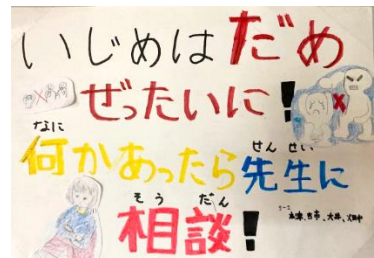 いじめは だめ
ぜったいに!
なに
何かあったら
せん せい
先生に
そう だん
相談!